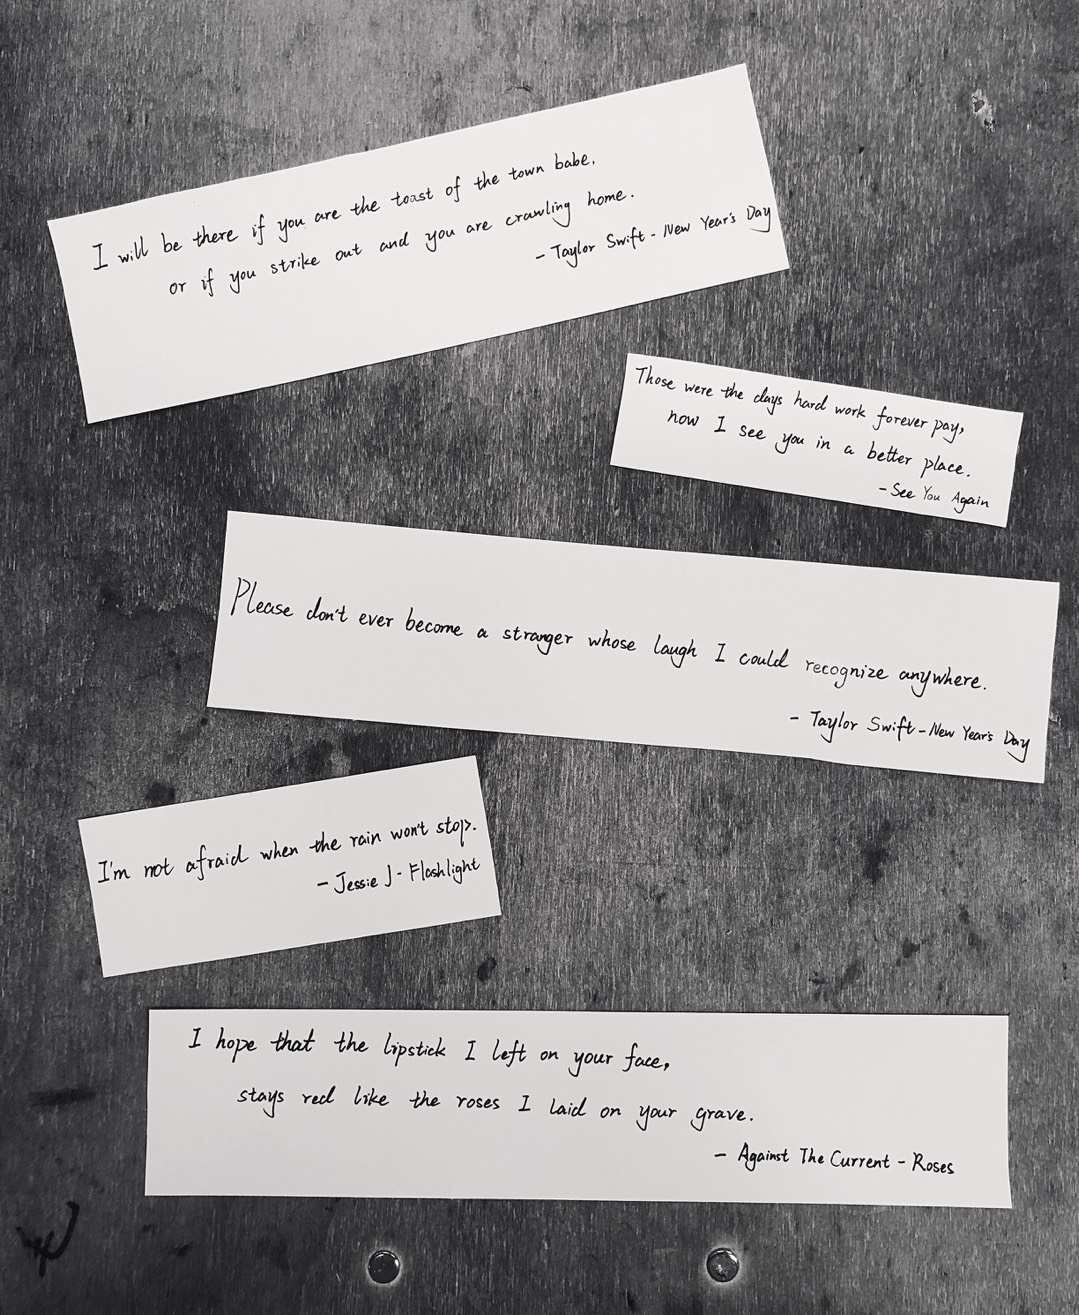 I will be there if you are the toast of the town babe.
or if you strike out and you are crawling home.
- Taylor Swift - New Year's Day
Those were the days hard work forever pay,
now I see you in a better place.
- See You Again
Please don't ever become a stranger whose laugh I could recognize anywhere.
- Taylor Swift - New Year's Day
I'm not afraid when the rain won't stop.
- Jessie J - Flashlight
I hope that the lipstick I left on your face,
stays red like the roses I laid on your grave.
- Against The Current - Roses